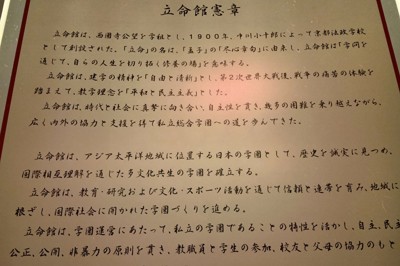 立命館憲章
立命館は、西園寺公望を学祖とし、１９００年、中川小十郎によって京都法政学校
として創設された。「立命」の名は、『孟子』の「尽心章句」に由来し、立命館は「学問を
通じて、自らの人生を切り拓く修養の場」を意味する。
立命館は、建学の精神を「自由と清新」とし、第２次世界大戦後、戦争の痛苦の体験を
踏まえて、教学理念を「平和と民主主義」とした。
立命館は、時代と社会に真摯に向き合い、自主性を貫き、幾多の困難を乗り越えながら、
広く内外の協力と支援を得て私立総合学園への道を歩んできた。
立命館は、アジア太平洋地域に位置する日本の学園として、歴史を誠実に見つめ、
国際相互理解を通じた多文化共生の学園を確立する。
立命館は、教育・研究および文化・スポーツ活動を通じて信頼と連帯を育み、地域に
根ざし、国際社会に開かれた学園づくりを進める。
立命館は、学園運営にあたって、私立の学園であることの特性を活かし、自主、民主、
公正、公開、非暴力の原則を貫き、教職員と学生の参加、校友と父母の協力のもと